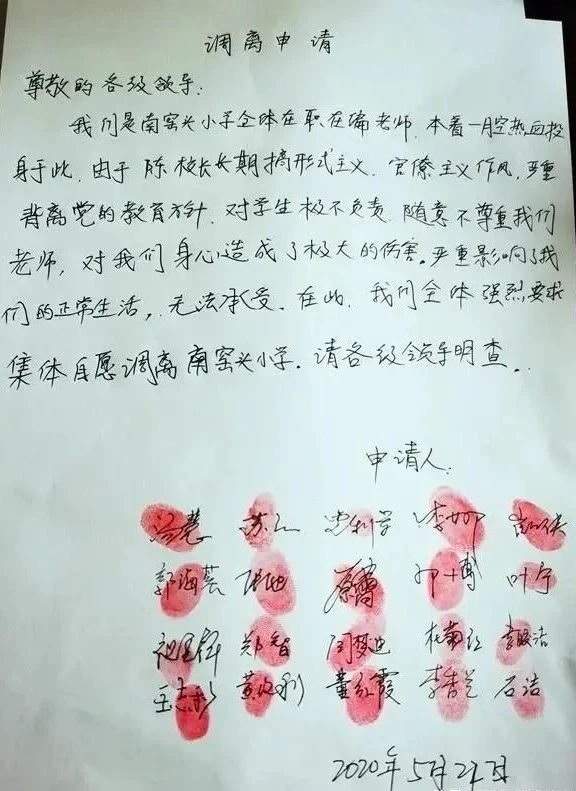 调离申请
尊敬的各级领导:
我们是南窑头小学全体在职在编老师,本着一腔热血投
身于此,由于陈校长长期搞形式主义、官僚主义作风,严重
背离党的教育方针,对学生极不负责,随意不尊重我们
老师,对我们身心造成了极大的伤害。严重影响了我
们的正常生活,无法承受。在此,我们全体强烈要求
集体自愿调离南窑头小学。请各级领导明查。
申请人:
郭海芸 叶宁
郑智 闫梦迪
董红霞 李杏兰 石洁
2020年5月27日